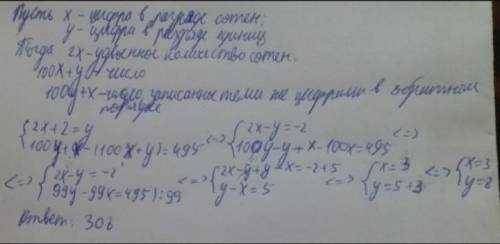 Пусть x - цифра в разряде сотен;
y - цифра в разряде единиц
Тогда 2x - удвоенное количество сотен,
100x+y - число
100y+x - число, записанное теми же цифрами в обратном
порядке
{2x+2=y <=> {2x-y=-2 <=>
{100y+x-(100x+y)=495 {100y-y+x-100x=495
<=> {2x-y=-2 <=> {2x-y+y-x=-2+5 <=> {x=3 <=> {x=3
{99y-99x=495|:99 {y-x=5 {y=5+3 {y=8
Ответ: 308